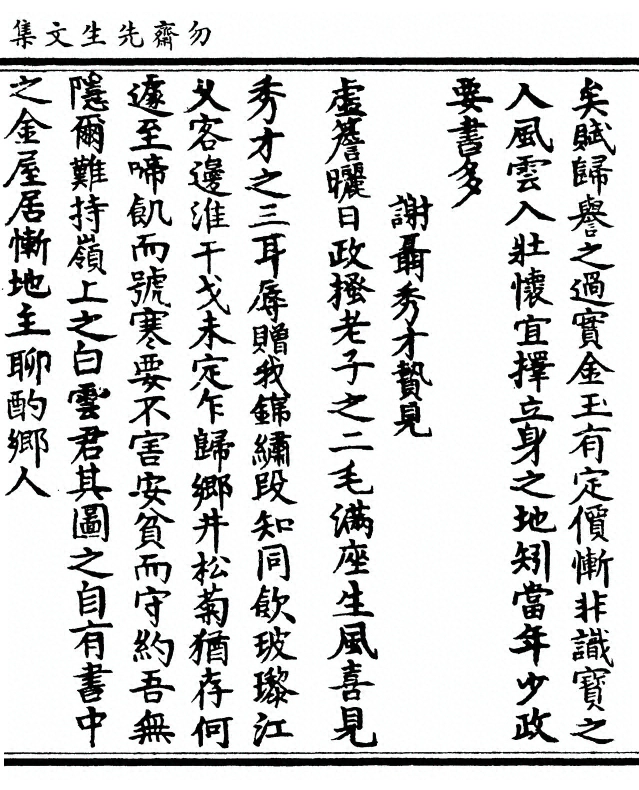 勿齋先生文集
矣賦歸譽之過實金玉有定價慚非識寶之
人風雲入壯懷宜擇立身之地矧當年少政
要書多
謝聶秀才贄見
虛簷曬日政搔老子之二毛滿座生風喜見
秀才之三耳辱贈我錦繡段知同飲玻瓈江
乂客邊淮干戈未定乍歸鄉井松菊猶存何
遽至啼飢而號寒要不害安貧而守約吾無
隱爾難持嶺上之白雲君其圖之自有書中
之金屋居慚地主聊酌鄉人